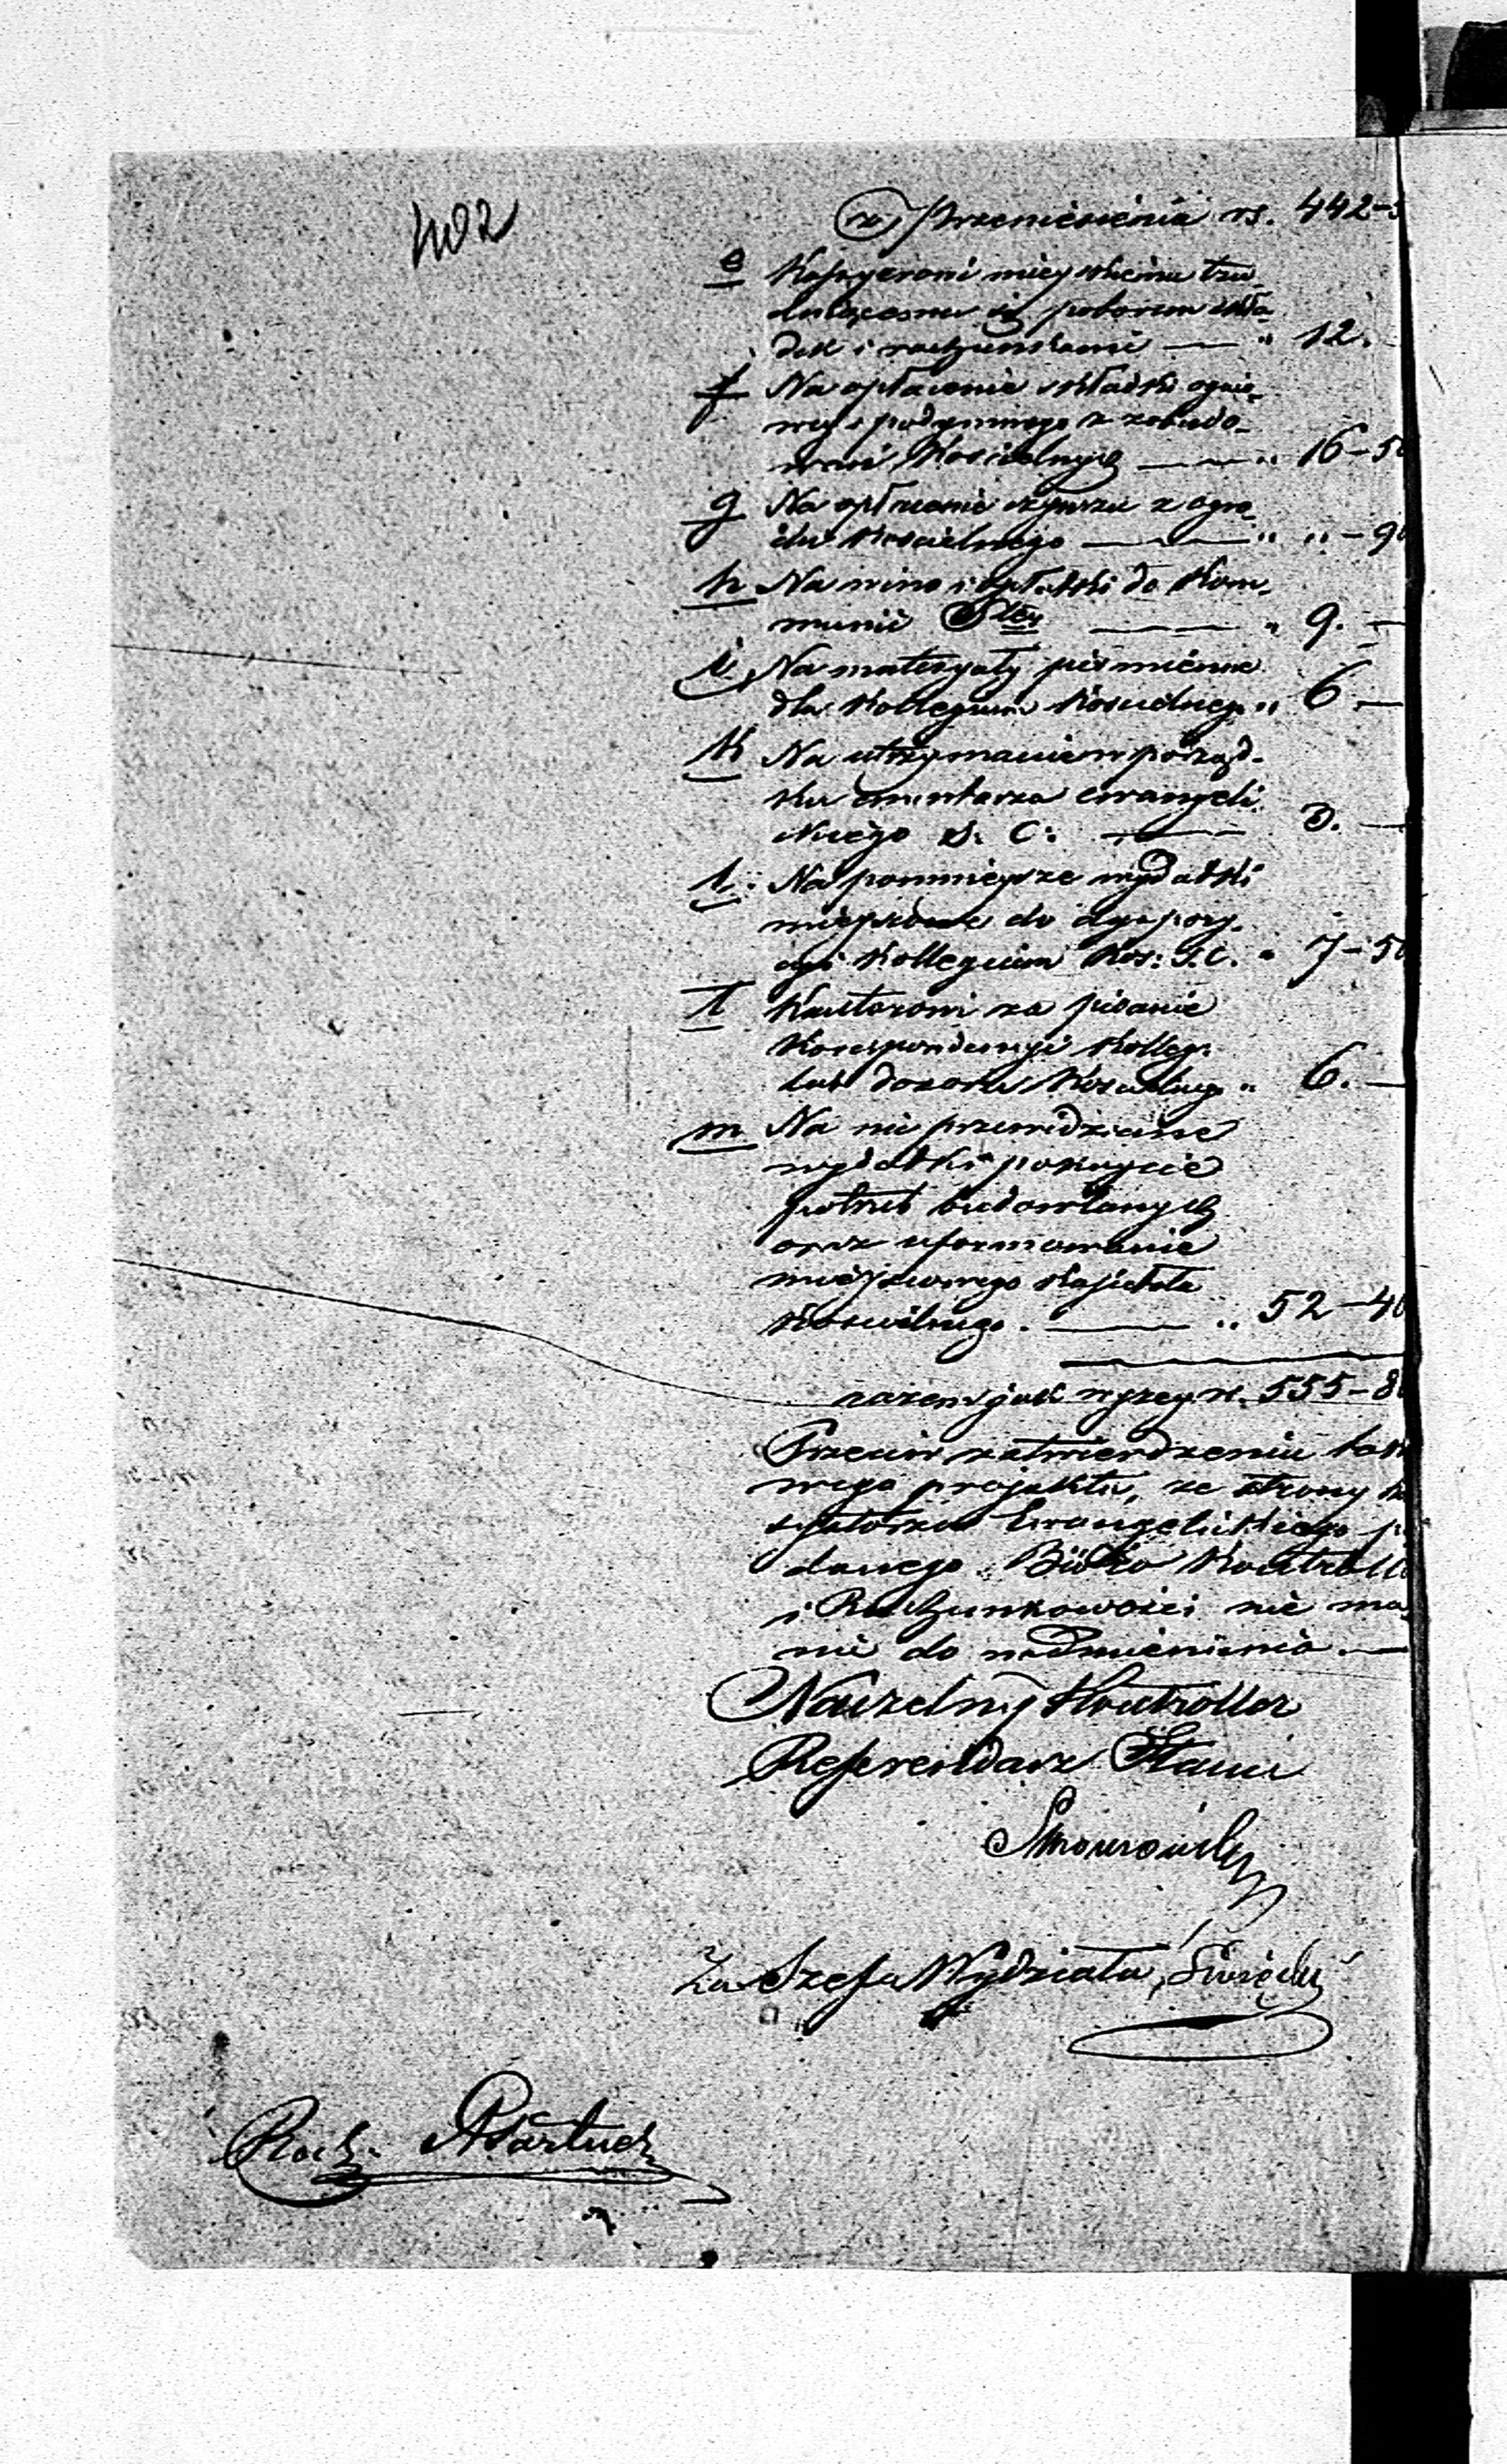 402
z Przeniesienia rs. 442-3
e Kassyerowi mieyskiemu tru-
dniącemu się poborem skła-
dek i rachunkami — " 12. —
f Na opłacenie składki ognio-
wey i podymnego z zabudo-
wań Kościelnych — " 16-50
g Na opłacenie czynszu z ogro-
du Kościelnego — " " - 90
h Na wino i opłatki do Kom-
munii Stey — " 9. —
i Na materyały piśmienne
dla Kollegium Kościelneg. " 6 —
k Na utrzymanie w porząd-
ku cmentarza ewangeli-
ckiego S. C. — 3. —
l. Na pomnieysze wydatki
mieyscowe do dyspozy-
cyi Kollegium Kos: S. C. " 7-50
ł Kantorowi za pisanie
Korespondencyi Kolleg.
lub dozoru Kościelneg " 6. —
m Na nie przewidziane
wydatki pokrycie
potrzeb budowlanych
oraz uformowanie
mieyscowego Kapitału
Kościelnego. — " 52-40
razem jak wyzey rs. 555-80
Przeciw zatwierdzeniu tako
wego projektu, ze strony Kon
systorza Ewangelickiego po
danego Biuro Kontrolli
i Rachunkowości nie ma
nic do nadmienienia. —
Naczelny Kontroller
Referendarz Stanu
Za Szefa Wydziału, Święcki
Rach.